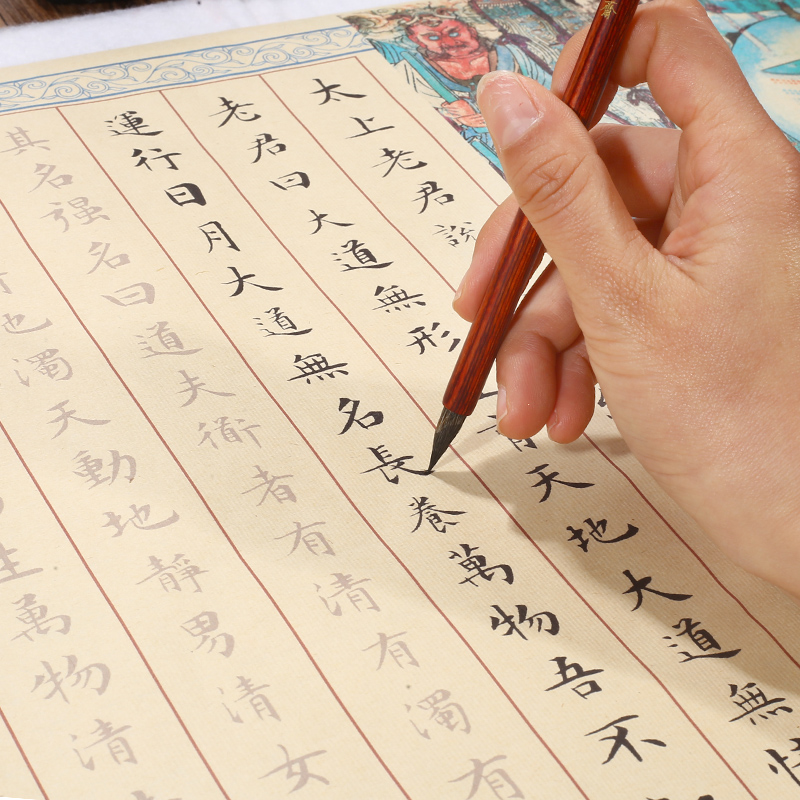 太上老君說
老君曰大道無形育天地大道無情
運行日月大道無名長養萬物吾不
其名强名曰道夫衜者有清有濁有
地濁天動地靜男清女
生萬物清